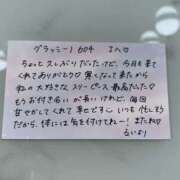 グラッシーノ 604 Iさん♡
ちょっと久しぶりだったけど、今日も来て
くれてありがとう♡ 寒くなって来たから
私の大好きな スリーピース 最高だった♡
もうお付き合いが長いけれど、毎回
甘やかしてくれて 幸せです♡ いつも忙しそう
だから、体には気を付けてね! またね♡
るいより